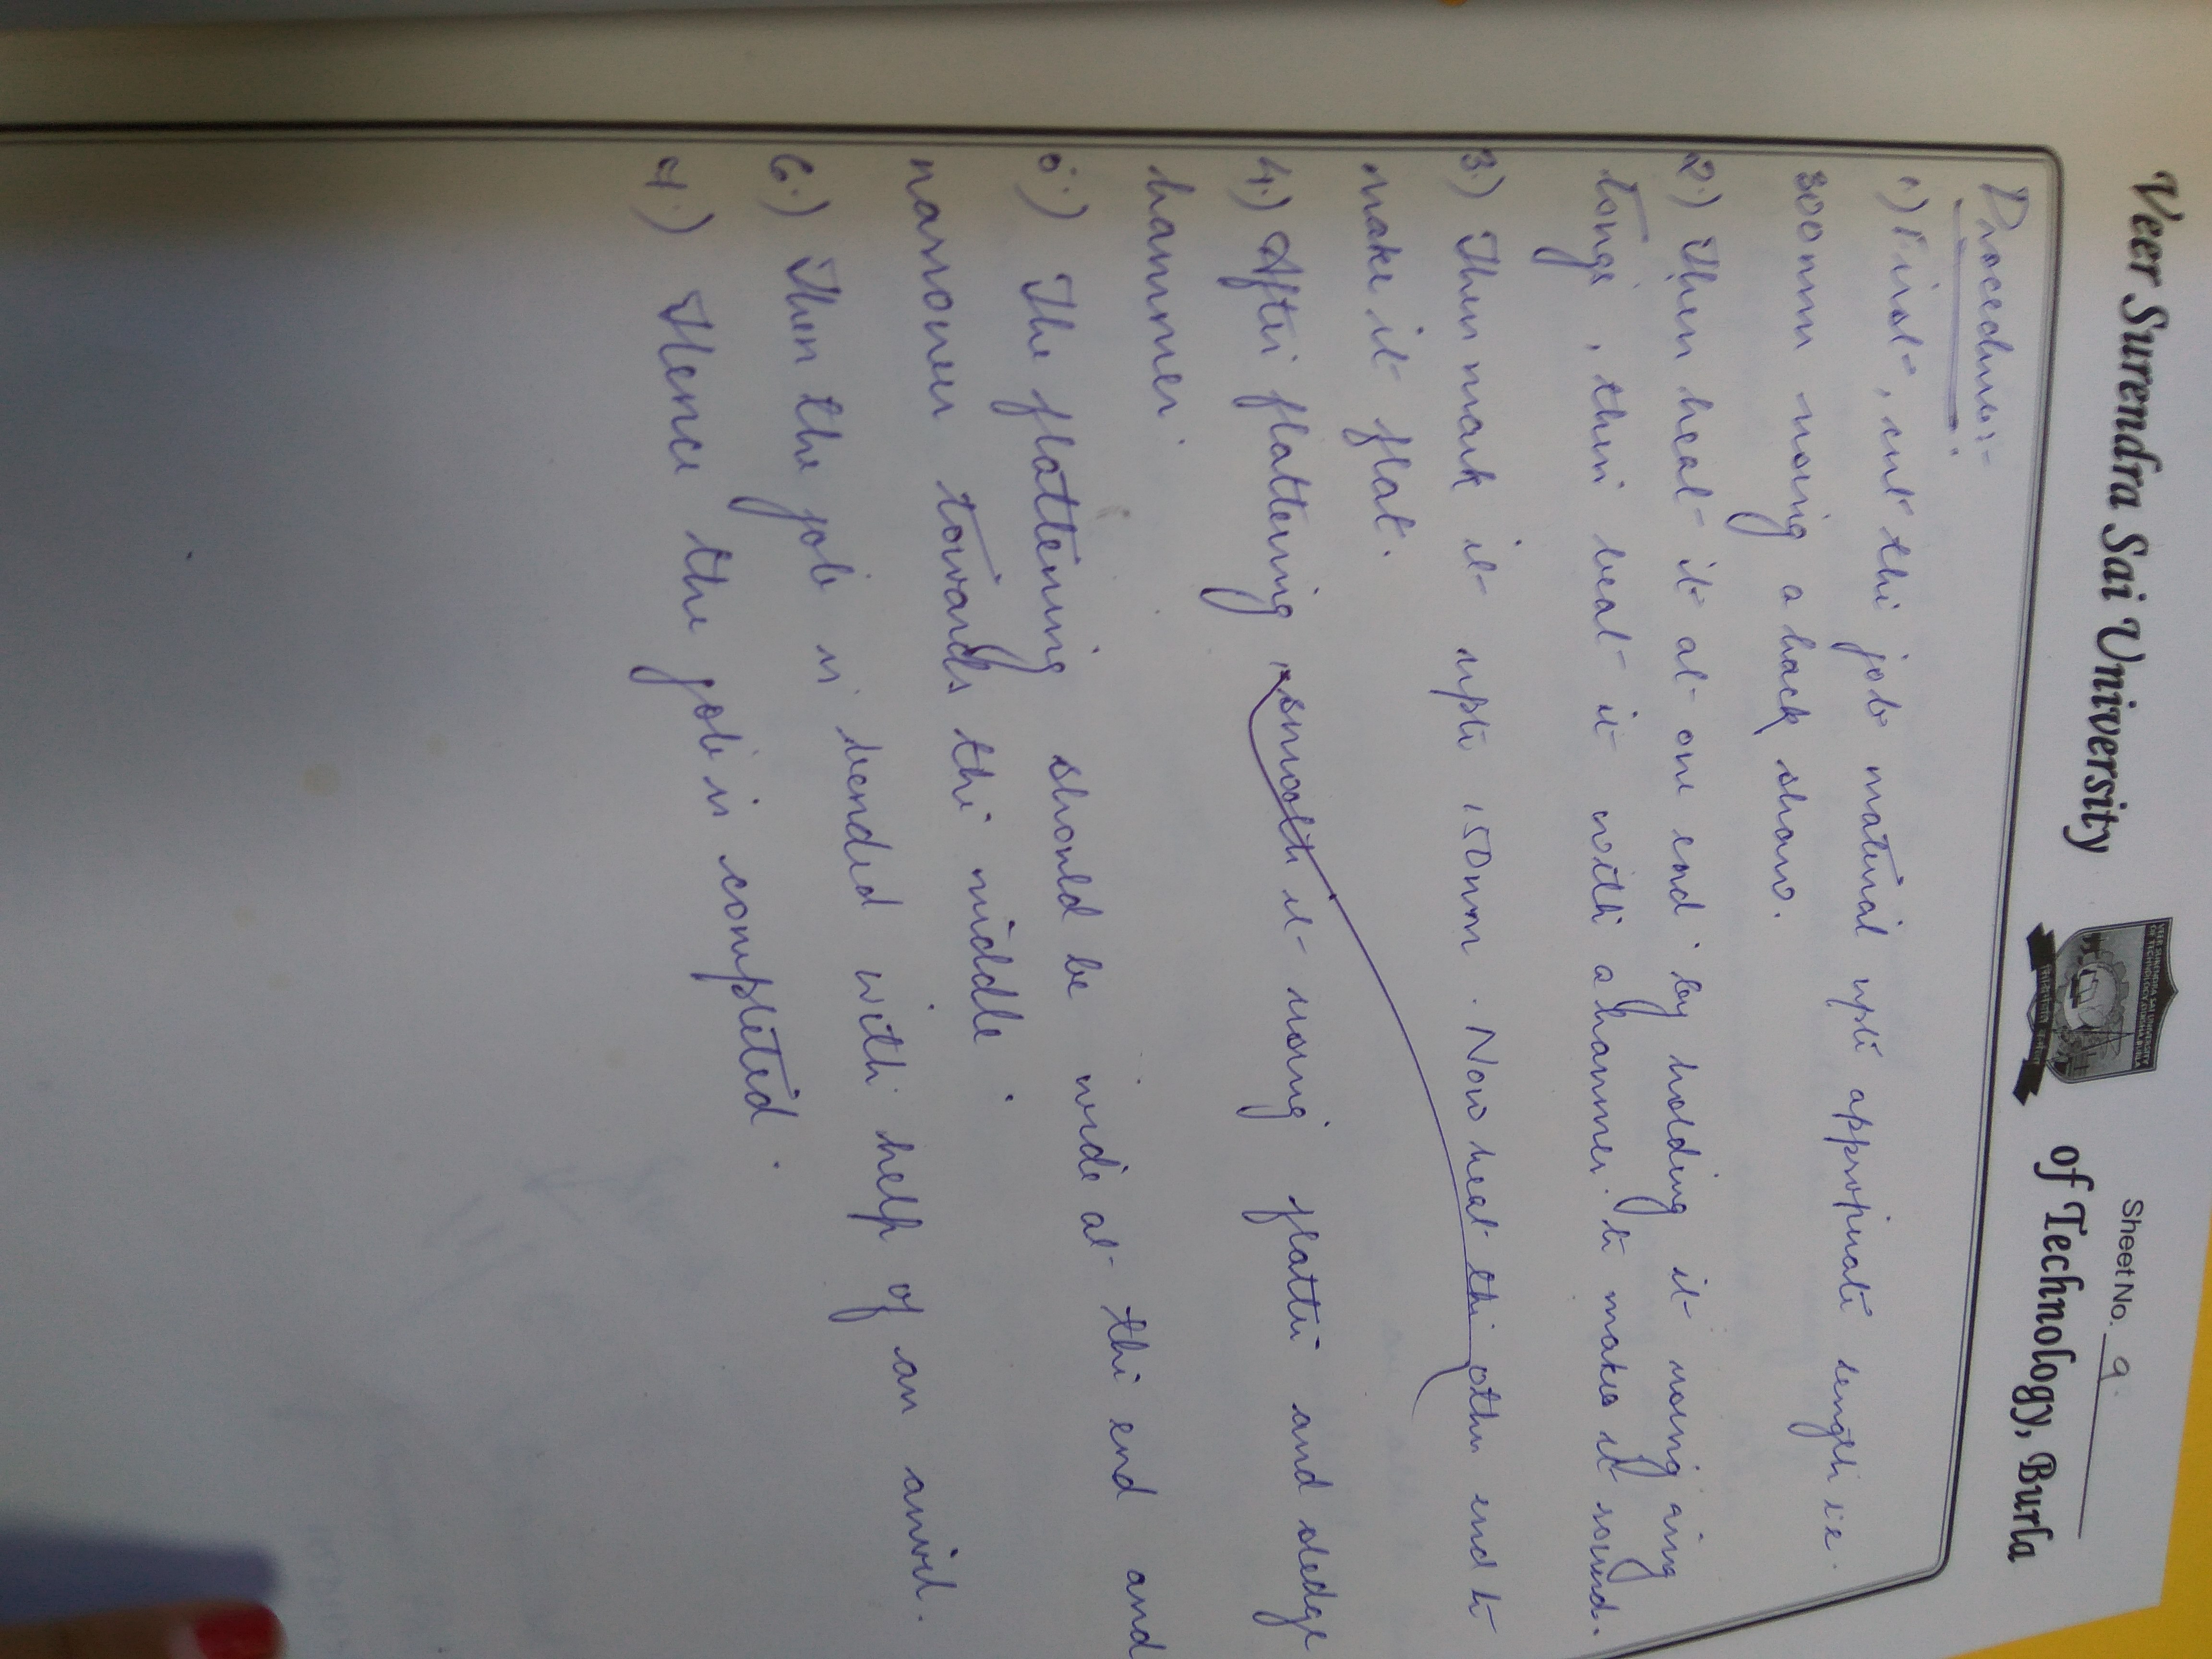 Sheet No. 9.
Veer Surendra Sai University of Technology, Burla
VEER SURENDRA SAI UNIVERSITY
OF TECHNOLOGY, ODISHA, BURLA
Procedure:-
1.) First, cut the job material upto appropriate length i.e.
300mm using a hack shaw.
2.) Then heat it at one end by holding it using ring
tongs, then beat it with a hammer to makes it round.
3.) Then mark it upto 150mm. Now heat the other end to
make it flat.
4.) After flattening smooth it using flatter and sledge
hammer.
5.) The flattening should be wide at the end and
narrower towards the middle.
6.) Then the job is bended with help of an anvil.
7.) Hence the job is completed.